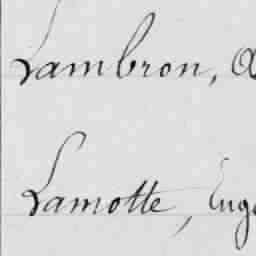 Lambron,
Lamotte,